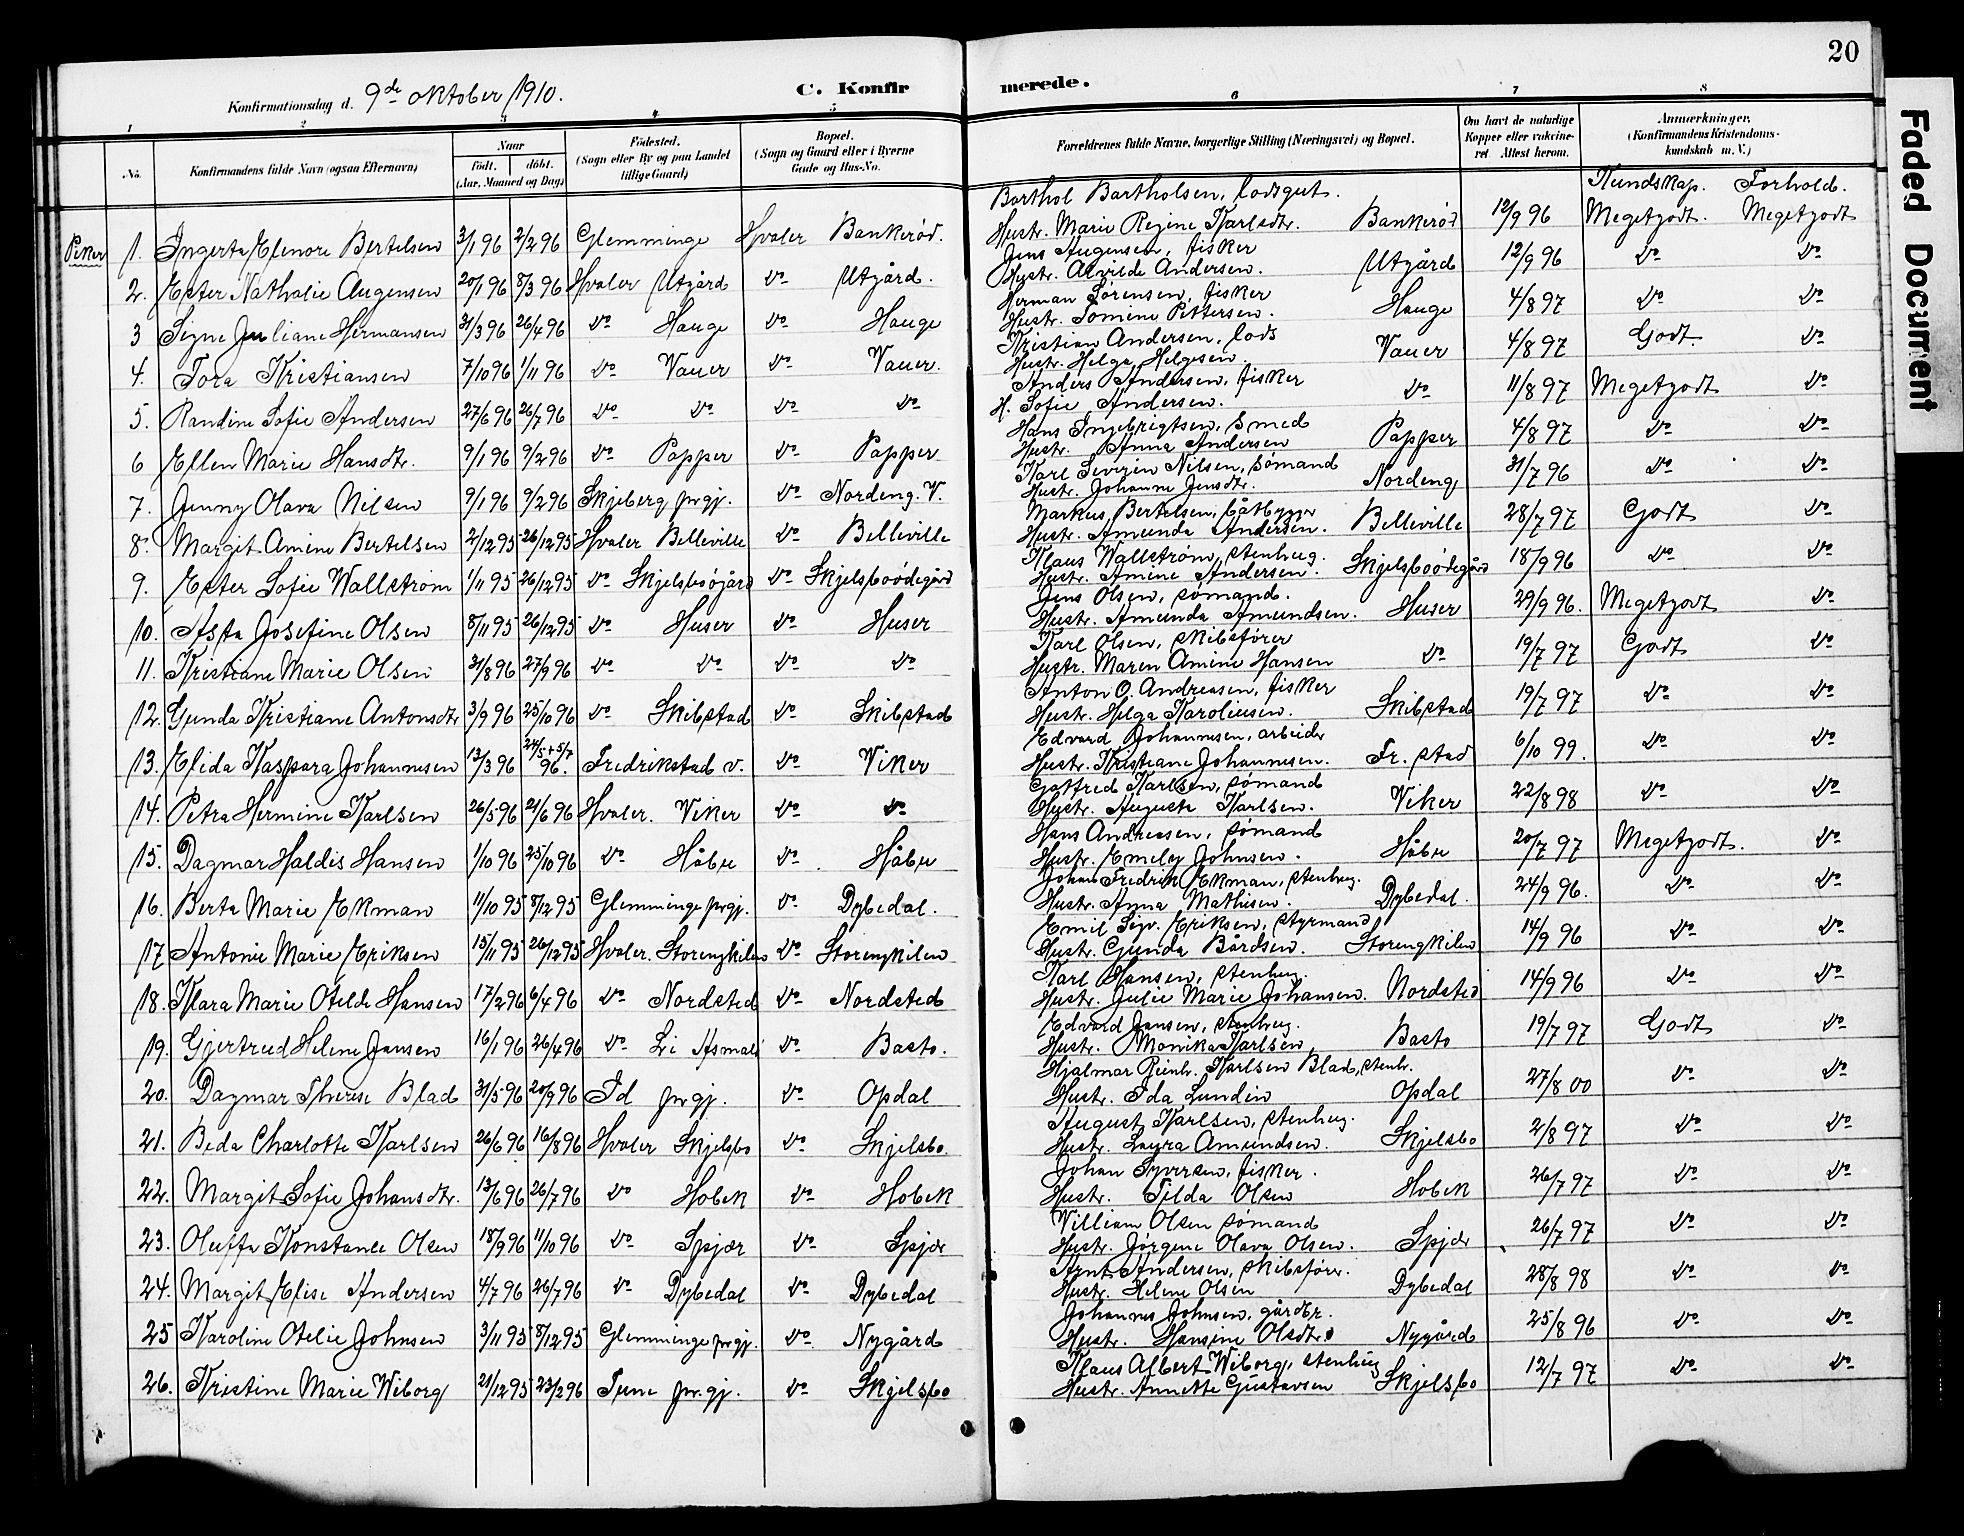 20
Konfirmationsdag d. 9de oktober 1910.
C. Konfirmerede.
1 2 3 4 5 6 7 8
No. Konfirmandens fulde Navn (ogsaa Efternavn) Naar født. døbt. (Aar, Maaned og Dag) Fødested. (Sogn eller By og paa Landet tillige Gaard) Bopæl. (Sogn og Gaard eller i Byerne Gade og Hus-No. Forældrenes fulde Navne, borgerlige Stilling (Næringsvei) og Bopæl. Om havt de naturlige Kopper eller vaccineret Attest herom. Anmærkninger, (Konfirmandens Kristendomskundskab m. V.)
Kundskap. Forhold.
Barthol Bartholsen, lodsgut.
Piker 1. Ingerta Elenore Bertelsen 3/1 96 2/2 96 Glemminge Hvaler Bankerød. Hustr. Marie Regine Karlsdtr. Bankerød 12/9 96 Megetgodt. Megetgodt
Jens Augensen, fisker
2. Ester Nathalie Augensen 20/1 96 8/3 96 Hvaler Utgård do Utgård. Hustr. Alvilde Andersen. Utgård 12/9 96 do do
Herman Sørensen, fisker
3 Signe Juliane Hermansen 31/3 96 26/4 96 do Hauge do Hauge Hustr. Tomine Pettersen. Hauge 4/8 97 do do
Kristian Andersen, lods
4. Tora Kristiansen 7/10 96 1/11 96 do Vauer do Vauer. Hustr. Helga Helgesen. Vauer 4/8 97 Godt do
Anders Andersen, fisker
5. Randine Sofie Andersen 27/6 96 26/7 96 do do do do H. Sofie Andersen. do 11/8 97 Megetgodt do
Hans Ingebrigtsen, smed
6 Ellen Marie Hansdtr. 9/1 96 9/2 96 do Papper do Papper Hustr. Anna Andersen Papper 4/8 97 do do
Karl Severin Nilsen, sømand
7. Jenny Olava Nilsen 9/1 96 9/2 96 Skjeberg prgj. do Nordeng. V. Hustr. Johanne Jensdtr. Nordeng 31/7 96 do do
Markus Bertelsen, båtbygger
8. Margit Amine Bertelsen 2/12 95 26/12 95 Hvaler Belleville do Belleville Hustr. Amunda Andersen. Belleville 28/7 97 Godt do
Klaus Wallstrøm, stenhug.
9. Ester Sofie Wallstrøm 1/11 95 26/12 95 do do Skjelsboødegård Hustr. Amine Andersen. Skjelsboødegård 18/9 96 do do
Jens Olsen, sømand.
10. Asta Josefine Olsen 8/11 95 26/12 95 do Huser do Huser Hustr. Amunda Amundsen. Huser 29/9 96. Megetgodt do
Karl Olsen, skibsfører
11. Kristiane Marie Olsen 31/8 96 27/9 96 do do do do Hustr. Maren Amine Hansen do 19/7 97 Godt do
Anton O. Andreasen, fisker
12. Gunda Kristiane Antonsdtr 3/9 96 25/10 96 do Skibstad do Skibstad Hustr. Helga Karoliusen. Skibstad 19/7 97 do do
Edvard Johannesen, arbeider
13. Elida Kaspara Johannesen 13/3 96 24/5 + 5/7 96. Fredrikstad v. do Viker Hustr. Kristiane Johannesen. Fr. stad 6/10 99. do do
Gotfred Karlsen, sømand
14. Petra Hermine Karlsen 26/5 96 21/6 96 Hvaler. Viker do do Hustr. Augusta Karlsen. Viker 22/8 98 do do
Hans Andreasen, sømand
15. Dagmar Haldis Hansen 1/10 96 25/10 96 do Håbu do Håbu Hustr. Emely Johnsen. Håbu 20/7 97 Megetgodt. do
Johan Fredrik Ekman, stenhug.
16. Berta Marie Ekman 11/10 95 8/12 95 Glemminge prgj. do Dybedal. Hustr. Anna Mathisen. Dybedal. 24/9 96. do do
Emil Sigv. Eriksen, styrmand
17 Antonie Marie Eriksen 15/11 95 26/12 95 Hvaler. Storengkilen do Storengkilen Hustr. Gunda Bårdsen. Storengkilen 14/9 96 do do
Karl Hansen, stenhug.
18. Klara Marie Otelde Hansen 17/2 96 6/4 96 do Nordsted do Nordsted Hustr. Julie Marie Johansen. Nordsted 14/9 96 do do
Edvard Jansen, stenhug.
19. Gjertrud Helene Jansen 16/1 96 26/4 96 do Li Asmalø do Basto. Hustr. Monika Karlsen Basto 19/7 97 Godt do
Hjalmar Reinh. Karlsen Blad, stenh.
20. Dagmar Therese Blad 31/5 96 20/9 96 Id prgj. do Opdal Hustr. Ida Lundin Opdal 27/8 00 do do
August Karlsen, stenhug.
21. Beda Charlotte Karlsen 26/6 96 16/8 96 Hvaler Skjelsbo do Skjelsbo Hustr. Laura Amundsen. Skjelsbo 2/8 97 do do
Johan Syversen, fisker.
22. Margit Sofie Johansdtr. 13/6 96 26/7 96 do Hobek do Hobek Hustr. Tilda Olsen Hobek 26/7 97 do do
William Olsen sømand
23. Oluffa Konstance Olsen 18/9 96 11/10 96 do Spjær do Spjær Hustr. Jørgine Olava Olsen. Spjær 26/7 97 do do
Arnt Andersen, skibsfører.
24. Margit Elise Andersen 4/7 96 26/7 96 do Dybedal do Dybedal Hustr. Helene Olsen Dybedal 28/8 98 do do
Johannes Johnsen, gårdbr.
25 Karoline Otelie Johnsen 3/11 95 8/12 95 Glemminge prgj. do Nygård Hustr. Hansine Olsdtr. Nygård 25/8 96 do do
Klaus Albert Wiborg, stenhug
26. Kristine Marie Wiborg 21/12 95 23/2 96 Tune prgj. do Skjelsbo Hustr. Annette Gustavsen Skjelsbo 12/7 97 do do
Faded Document